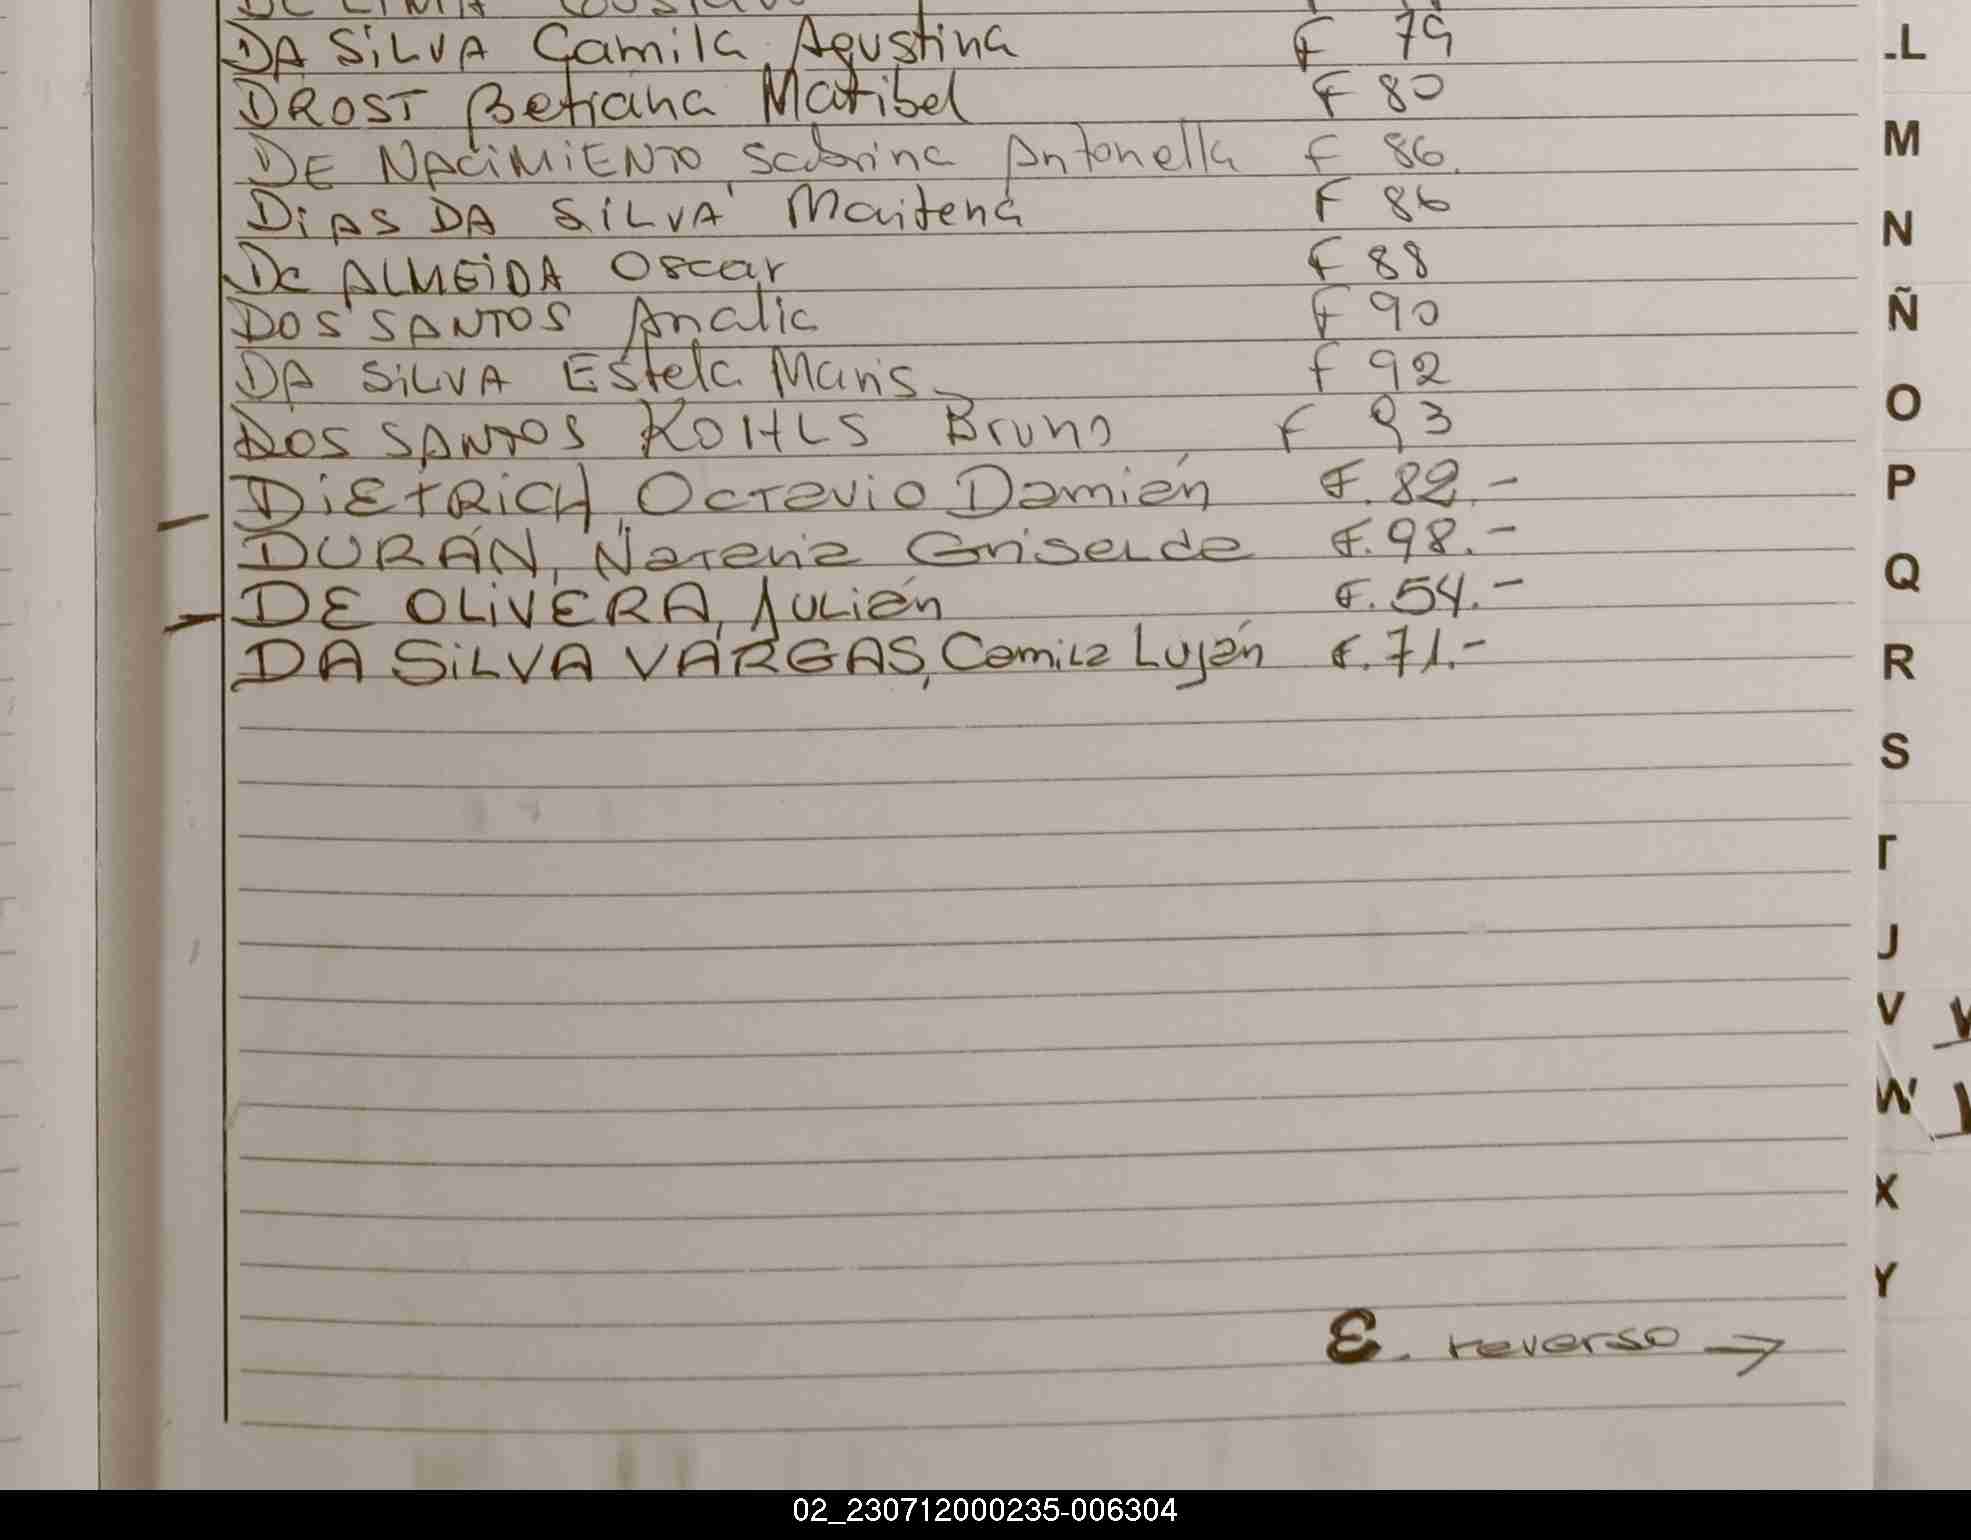 DA SiLVA Camila Agustina F 79
DROST Betiana Maribel F 80
DE NACiMiENTO, Sabrina Antonella F 86.
DiAS DA SiLVA Maitena F 86
De ALMEiDA Oscar F 88
DOS SANTOS Analia F 90
DA SiLVA Estela Maris F 92
DOS SANTOS KOHLS Bruno F 93
DiETRiCH, Octavio Damián F. 82.-
DURÁN, Natania Griselda F. 98.-
DE OLiVERA, Julián F. 54.-
DA SiLVA VARGAS, Camila Luján F. 71.-
E. reverso →
L
M
N
Ñ
O
P
Q
R
S
T
V
W
X
Y
02_230712000235-006304